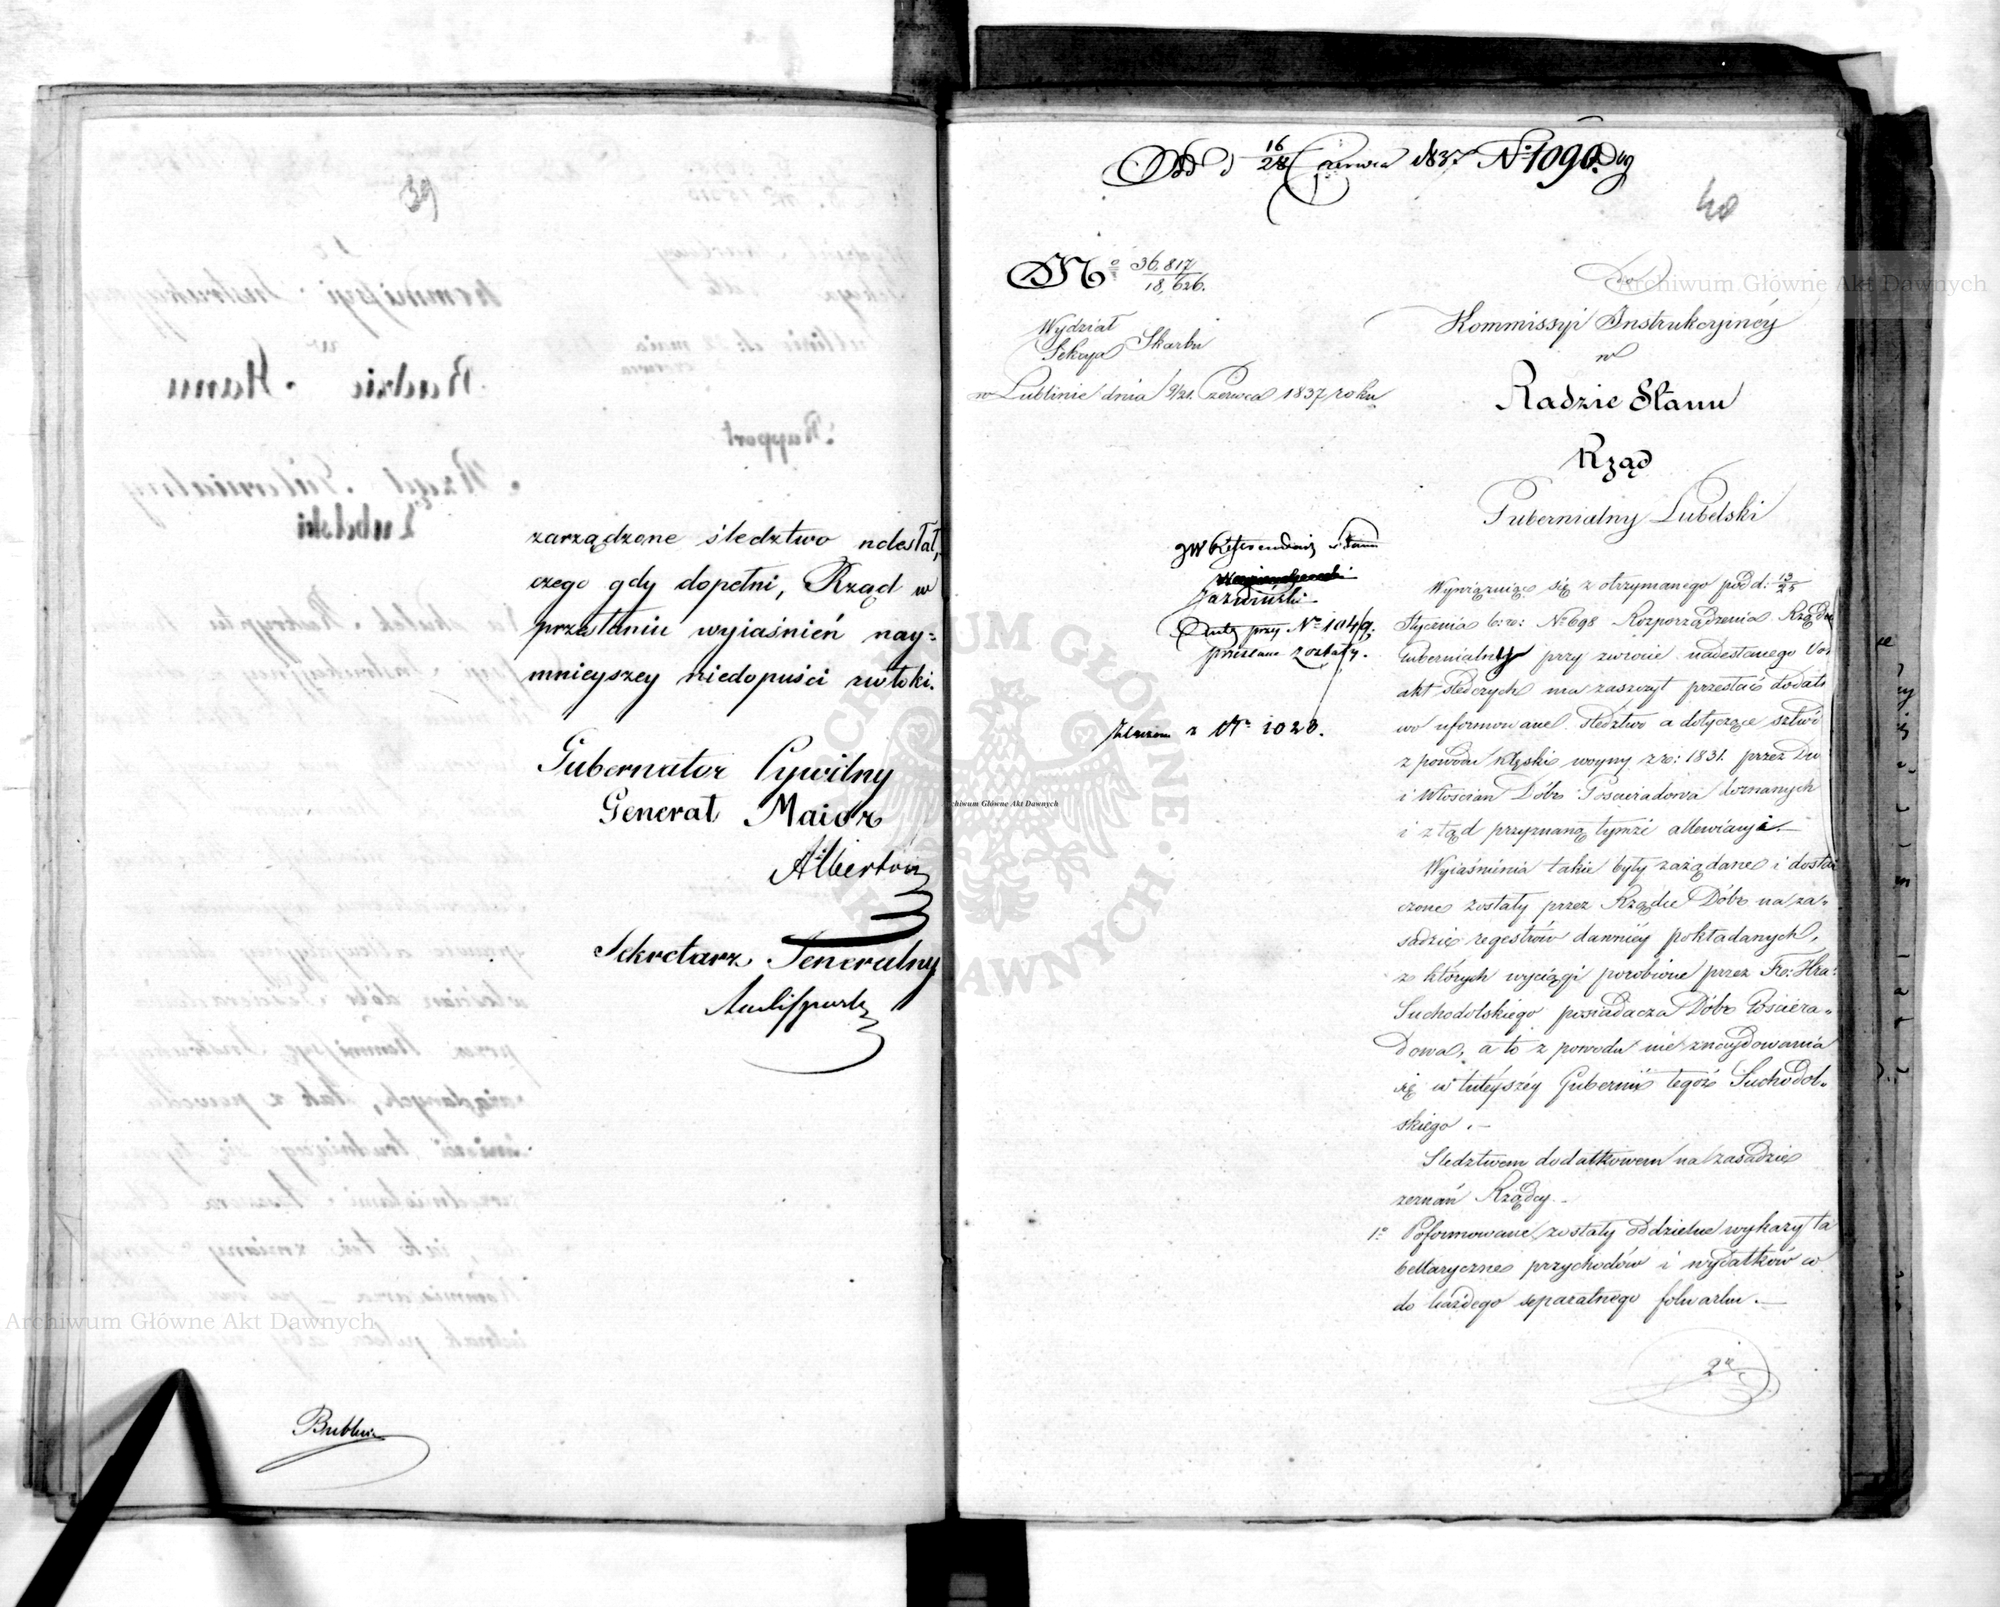 39
zarządzone śledztwo nadesłał,
czego gdy dopełni, Rząd w
przesłaniu wyiaśnień nay=
mnieyszey niedopuści zwłoki.
Gubernator Cywilny
Generał Maior
Albertów
Sekretarz Generalny
Archiwum Główne Akt Dawnych
16/28 Czerwca 1837 No 1090
40
No 36,817/18,626.
Wydział Skarbu
Sekcya
w Lublinie dnia 9/21 Czerwca 1837 roku
Do
Kommissyi Instrukcyinéy
w
Radzie Stanu
Rząd
Gubernialny Lubelski
JW Referendarz Stanu
przy No 1049.
przesłane zostały.
z No 1028.
Wywiązuiąc się z otrzymanego pod d: 13/25
Stycznia b: r: No 698 Rozporządzenia Rząd
Gubernialny przy zwrocie nadesłanego
akt śledczych ma zaszczyt przesłać dodatk
wo uformowane śledztwo a dotyczące
z powodu klęski woyny z r: 1831. przez
i Włościan Dóbr Gościeradowa doznanych
i z tąd przyznaną tymże allewiacyi.—
Wyiaśnienia takie były zażądane i dosta
czone zostały przez Rządcę Dóbr na za=
sadzie regestrów dawniéy pokładanych,
z których wyciągi porobione przez Hra:
Suchodolskiego posiadacza Dóbr Gościera=
dowa, a to z powodu nie znaydowania
się w tuteyszéy Gubernii tegóż Suchodol=
skiego.—
Sledztwem dodatkowem na zasadzie
zeznań Rządcy.—
1o Poformowane zostały oddzielne wykazy ta
bellaryczne przychodów i wydatków co
do każdego separatnego folwarku.—
2o
Archiwum Główne Akt Dawnych
Archiwum Główne Akt Dawnych
ARCHIWUM GŁÓWNE AKT DAWNYCH